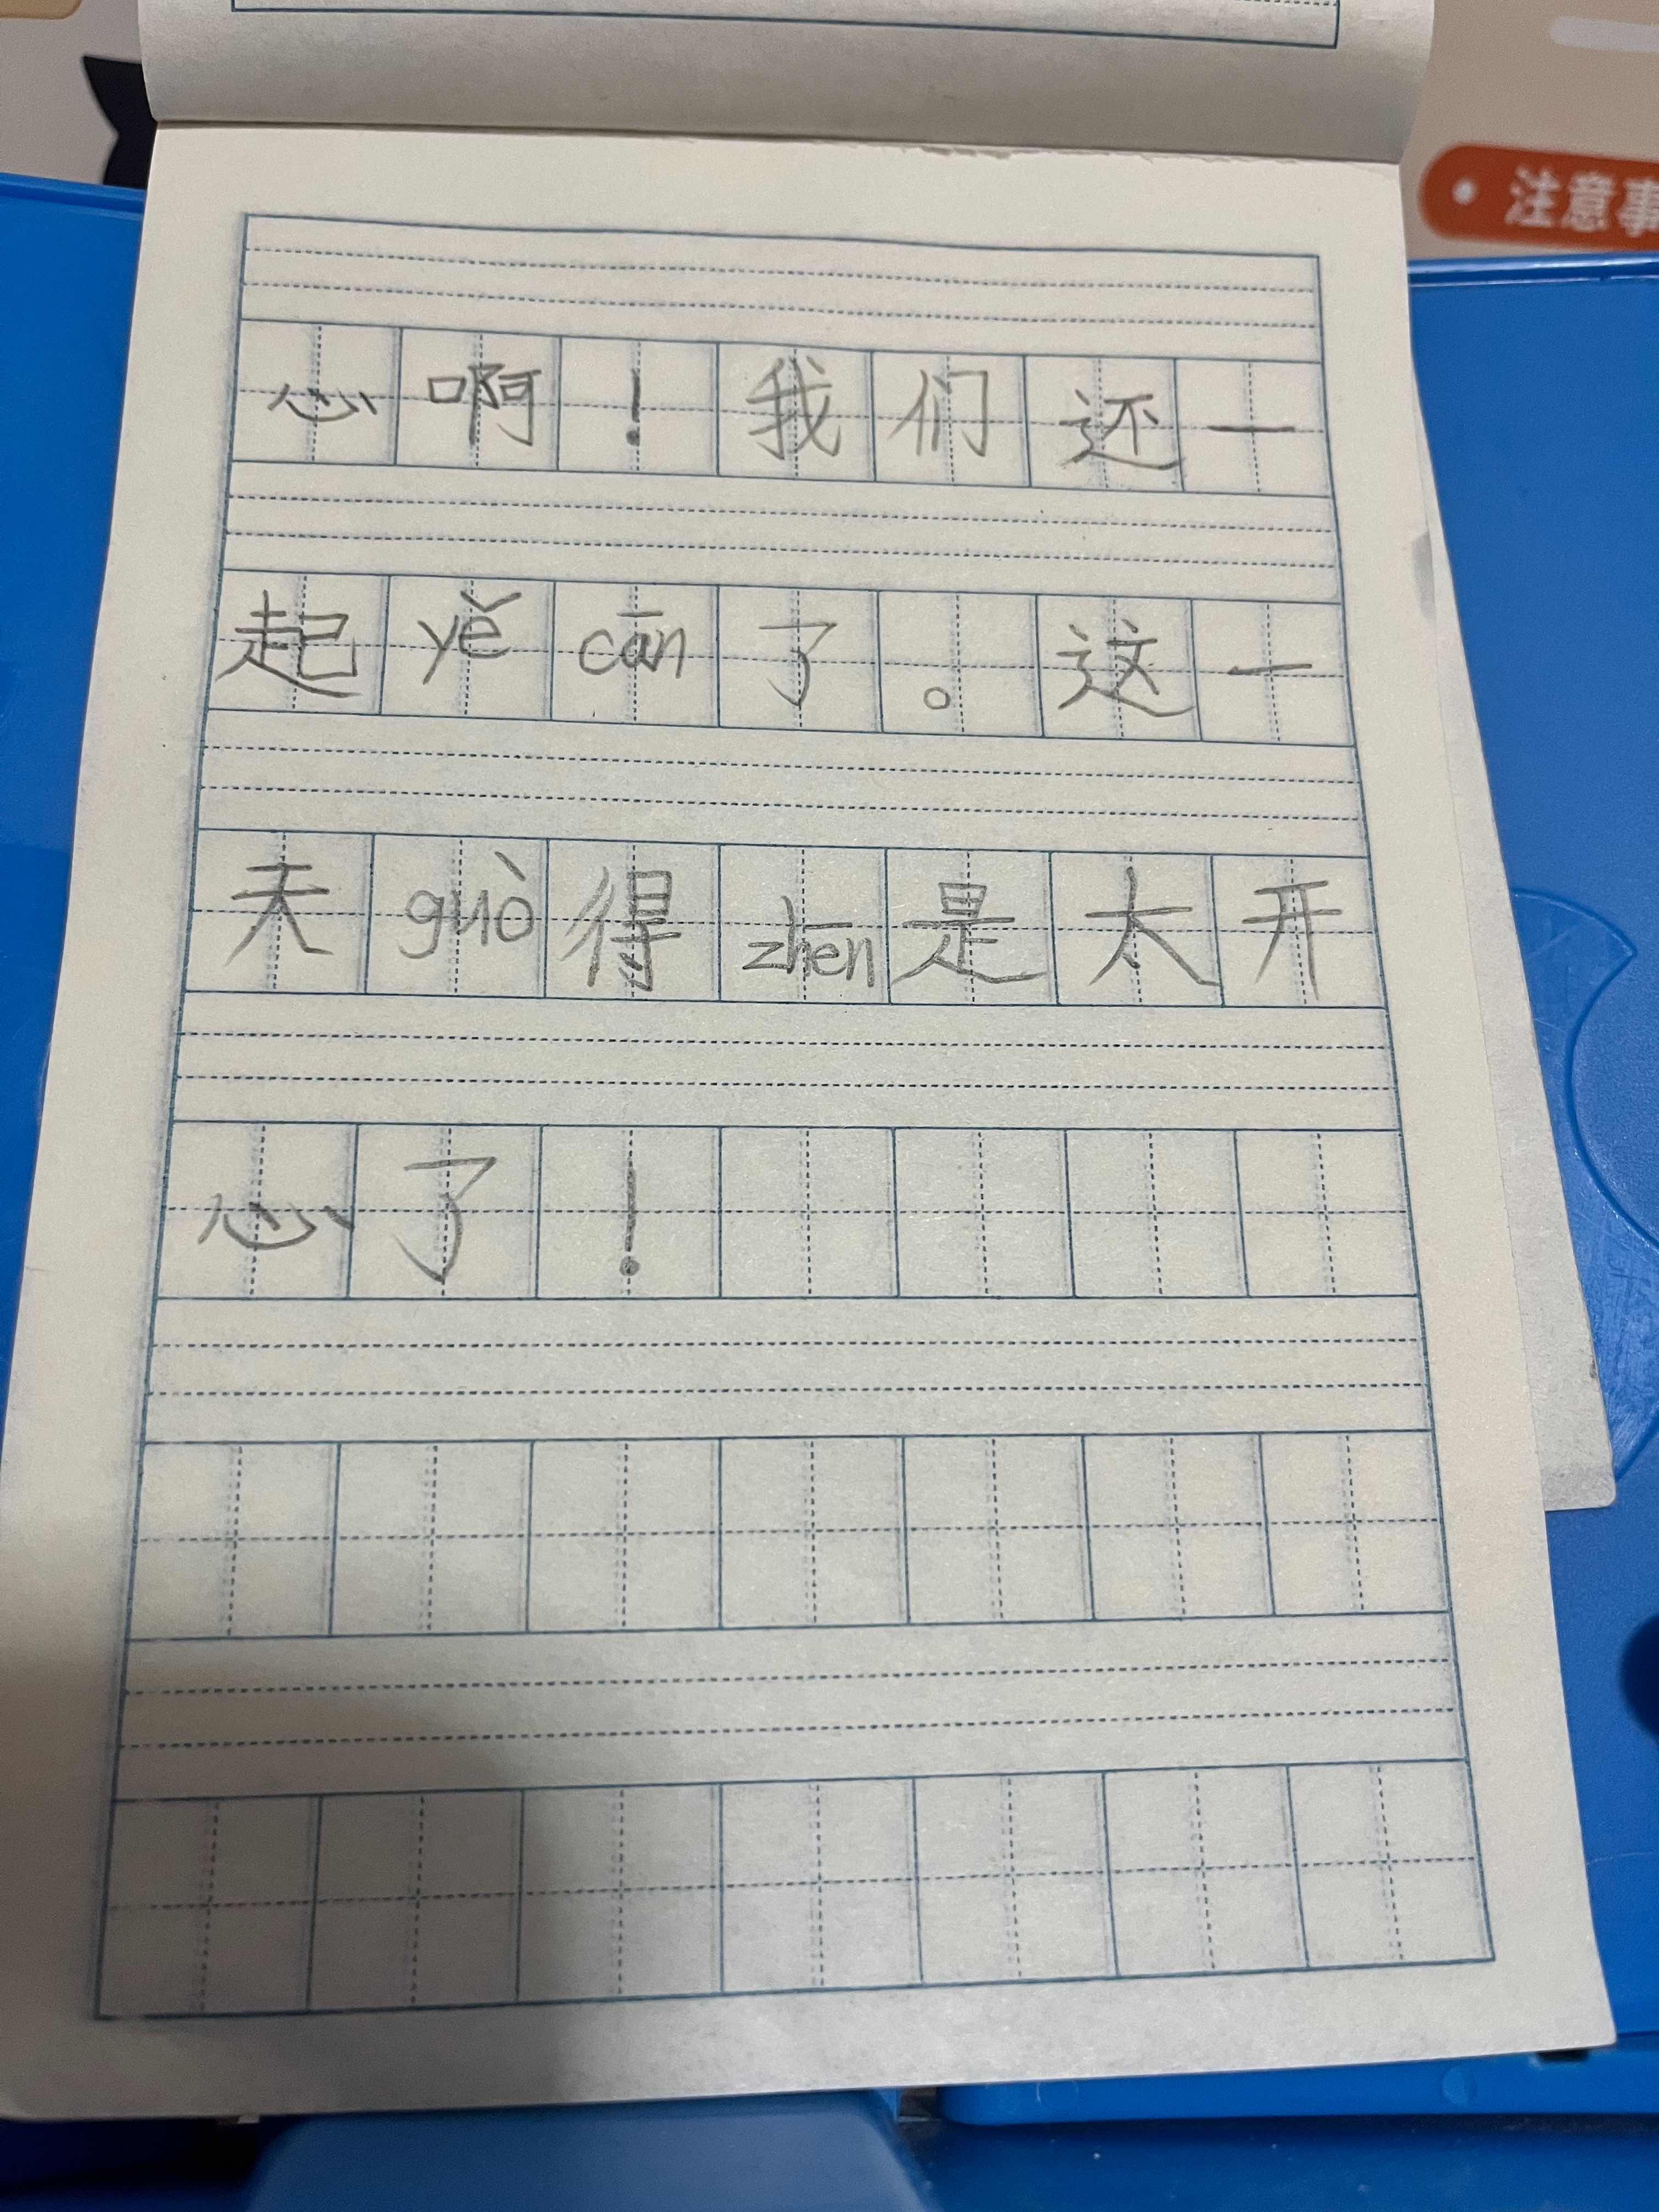 注意事
心啊！我们还一
起yě cān了。这一
天guò得zhēn是太开
心了！